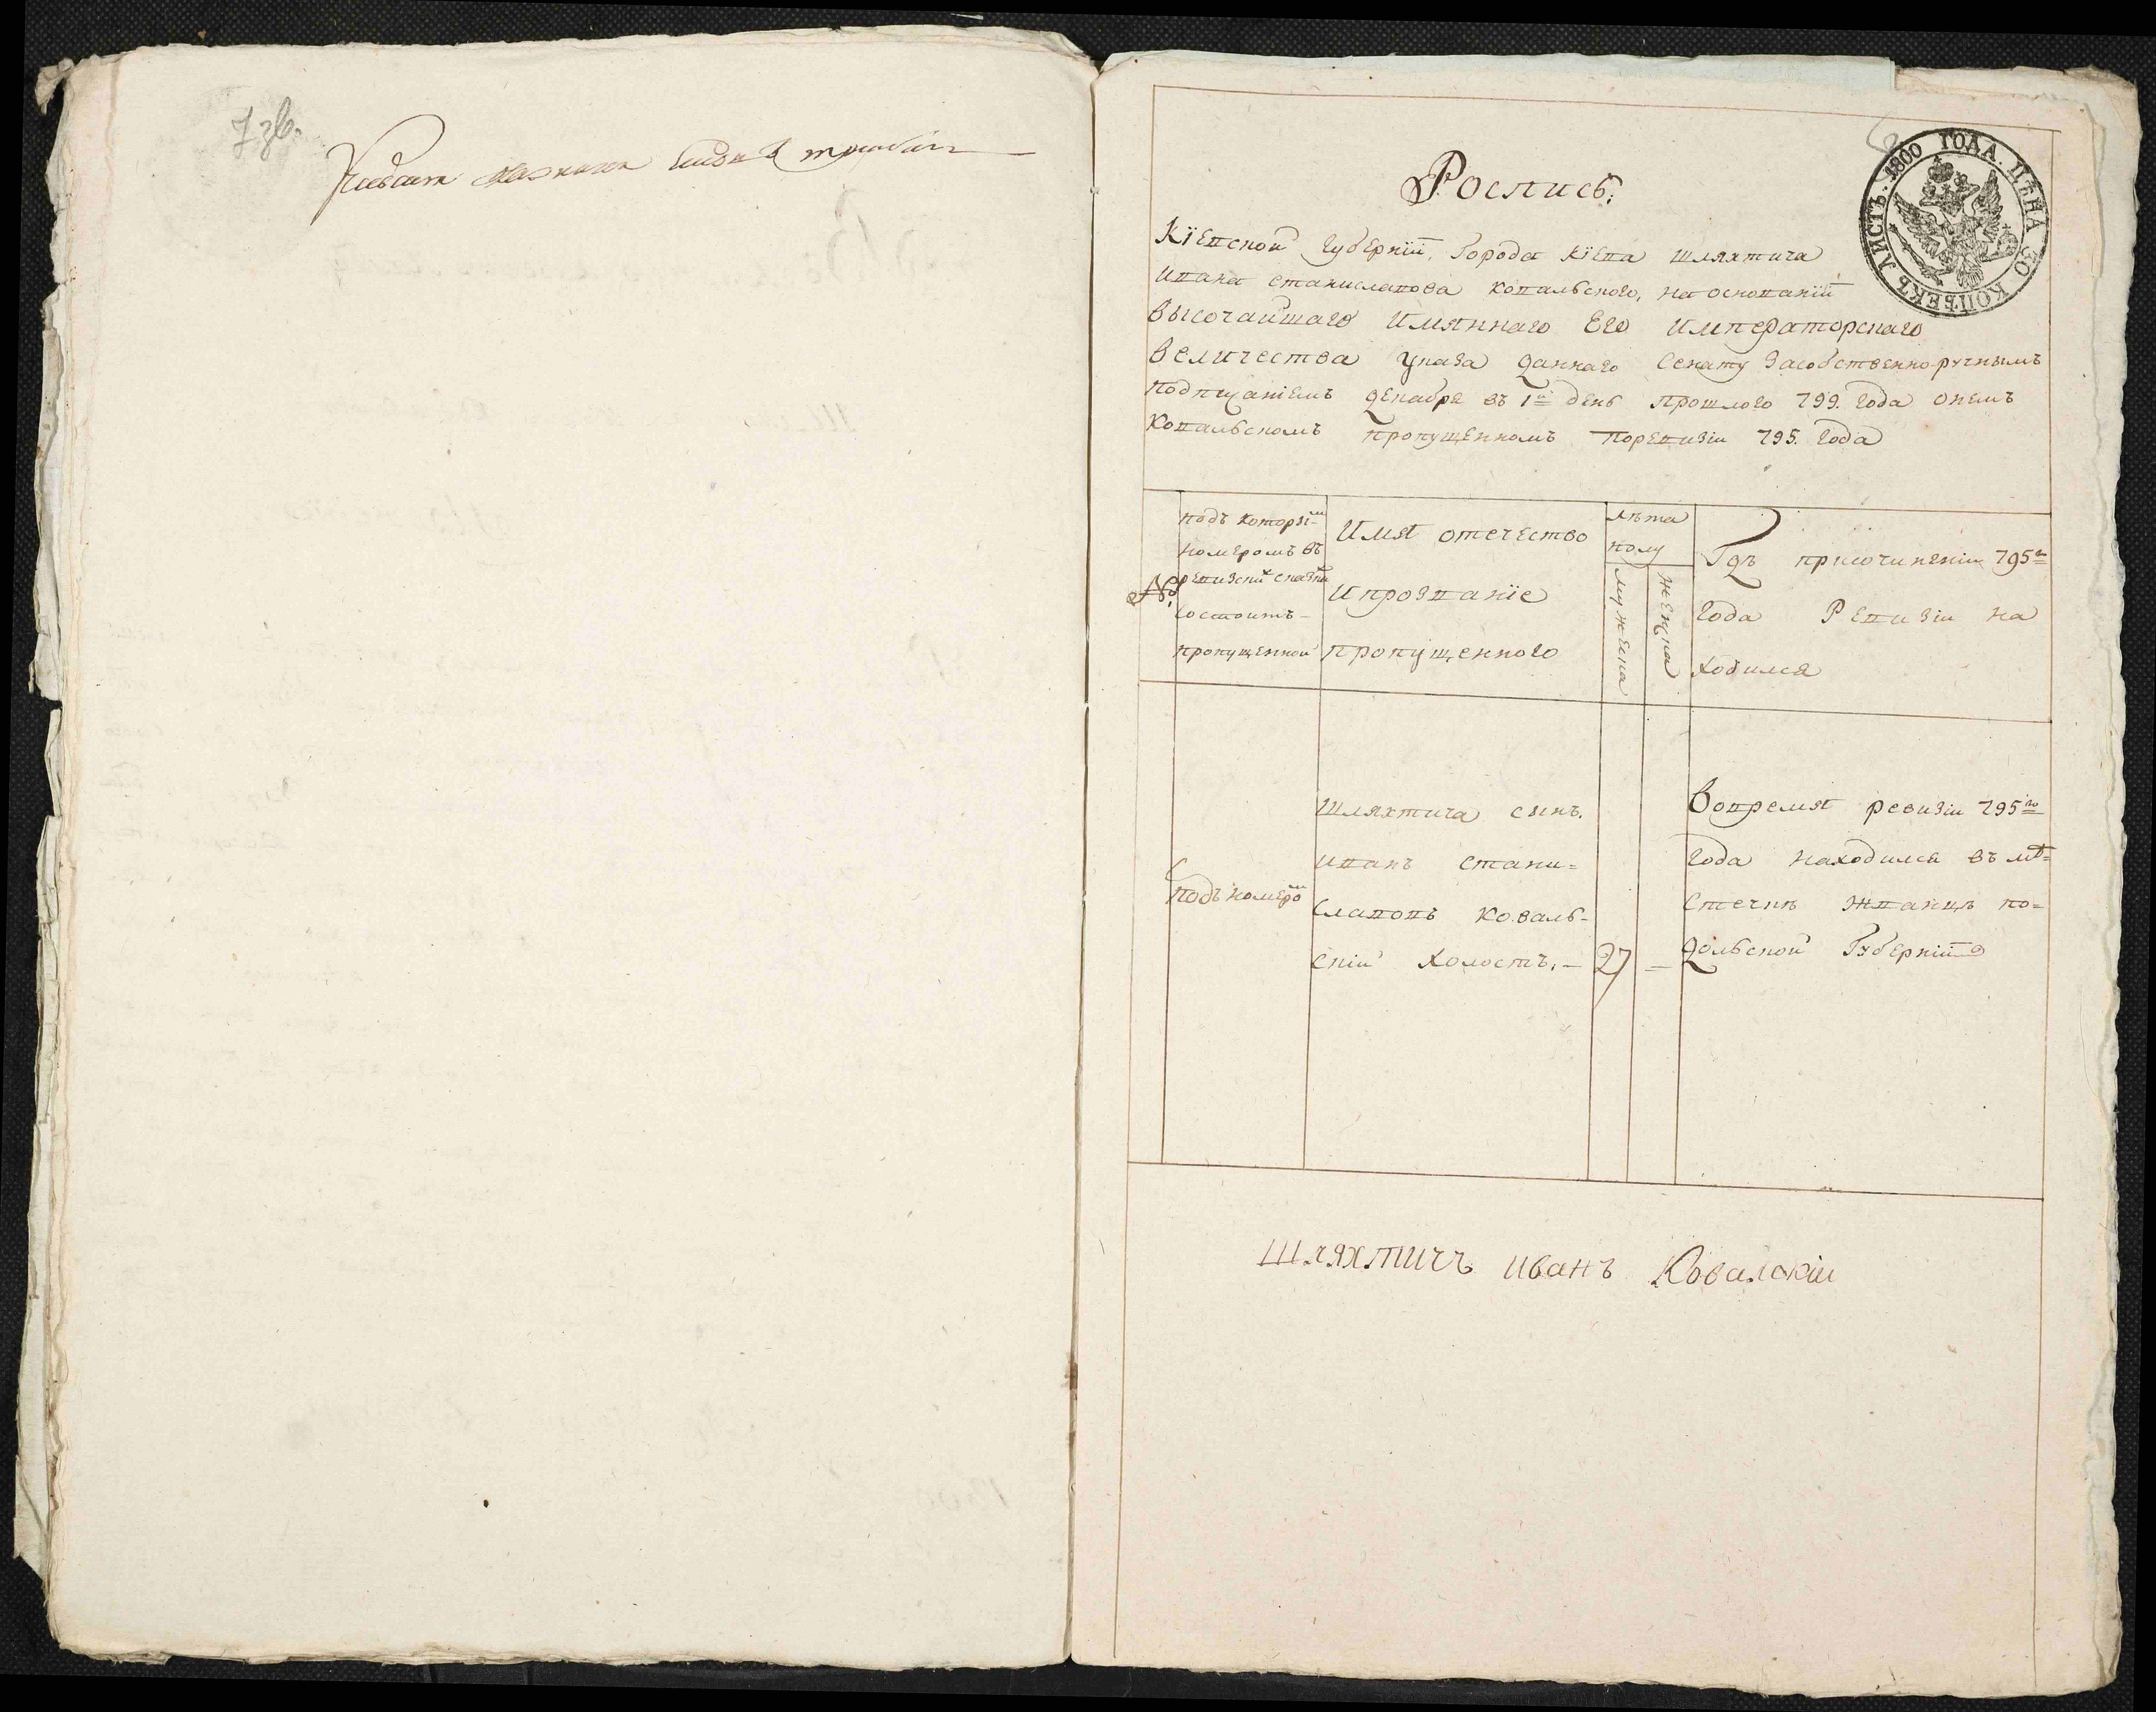 7 зв.
Роспись:
ЛИСТЪ. 1800 ГОДА. ЦѢНА 30 КОПѢЕКЪ
Кїевской Губернїи, Города Кїева шляхтича
ивана станиславова ковальского, на основанїи
высочайшаго Имяннаго Его Императорскаго
величества указа даннаго Сенату Засобственно-ручнымъ
подписаніемъ декабря въ 1й день прошлого 799. года онемъ
ковальскомъ пропущенномъ поревизіи 795. года
№.
подъ которым
номеромъ въ
ревизских сказках
состоитъ
пропущенной
Имя отечество
и прозванїе
пропущенного
лѣта
полу
мужеска
женска
Гдѣ присочиненіи 795й
года Ревизіи на
ходился
подъ номером
шляхтича сынъ.
иванъ стани=
славовъ коваль-
скій холостъ. -
27
-
вовремя ревизіи 795го
года находился въ мѣ=
стечкѣ жванцѣ по=
дольской Губерніи
шляхтичъ иванъ Ковалскіи